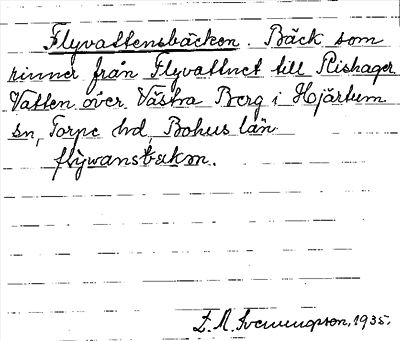 Flyvattensbäcken. Bäck som
rinner från Flyvattnet till Rishager
Vatten över Västra Berg i Hjärtum
sn, Torpe hd, Bohus län
flywansbækm.
E. M. Svenungson, 1935.